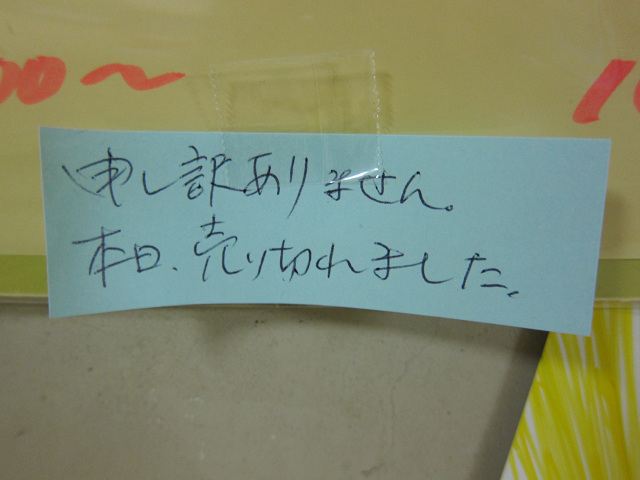 00～
1
申し訳ありません。
本日、売り切れました。